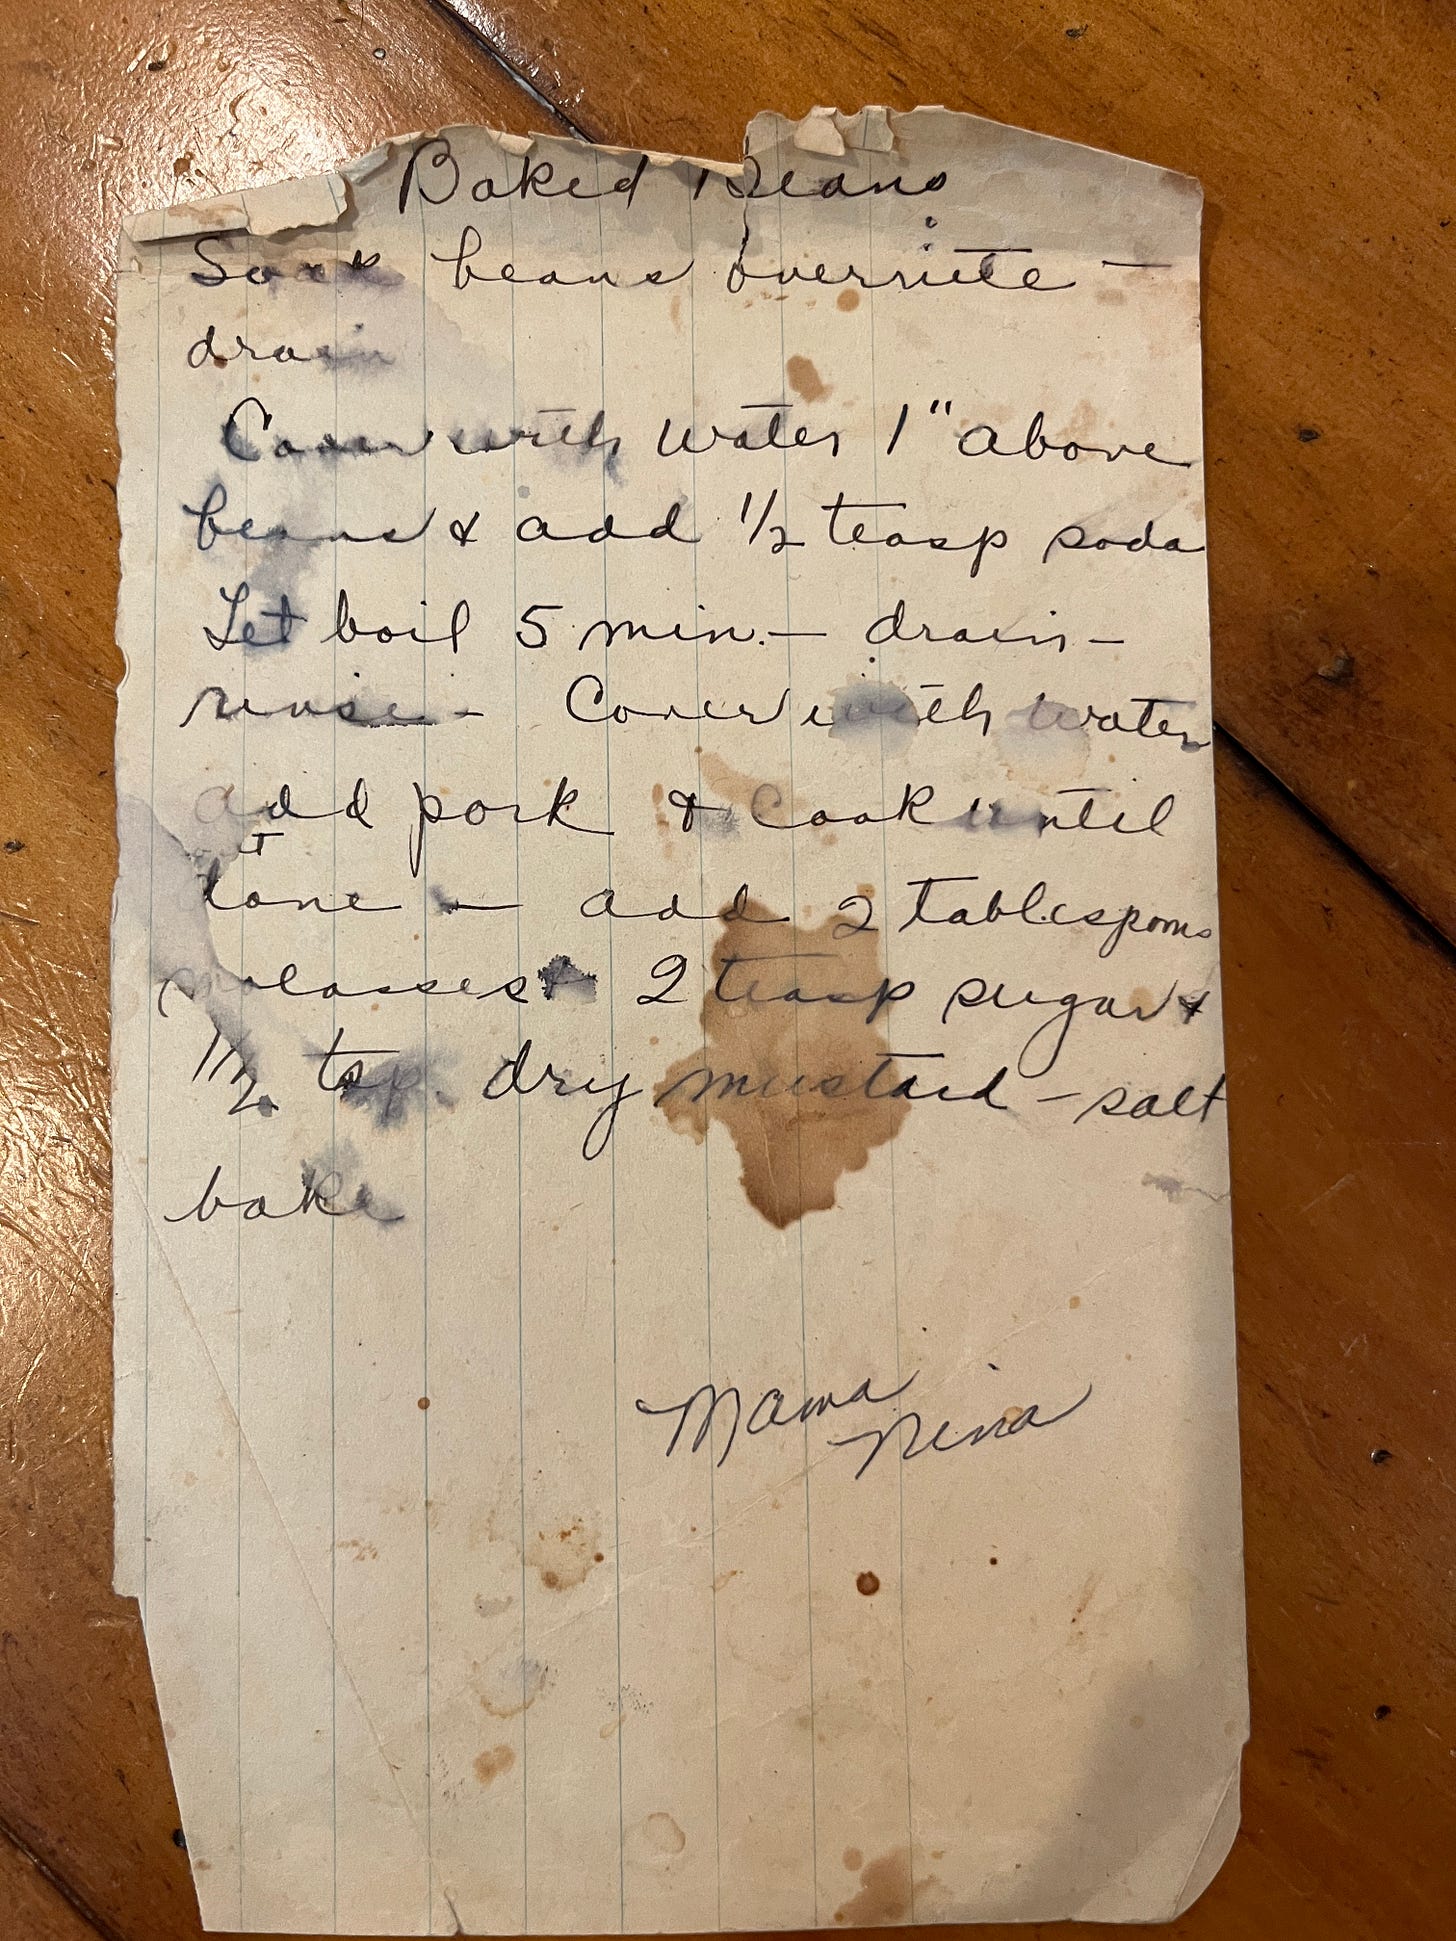 Baked Beans
Soak beans overnite —
drain
Cover with water 1" above
beans & add 1/2 teasp soda
Let boil 5 min. — drain —
rinse — Cover with water
add pork & cook until
done — add 2 tablespoons
molasses 2 teasp sugar &
1/2 tsp. dry mustard — salt
bake
Mama
Nina